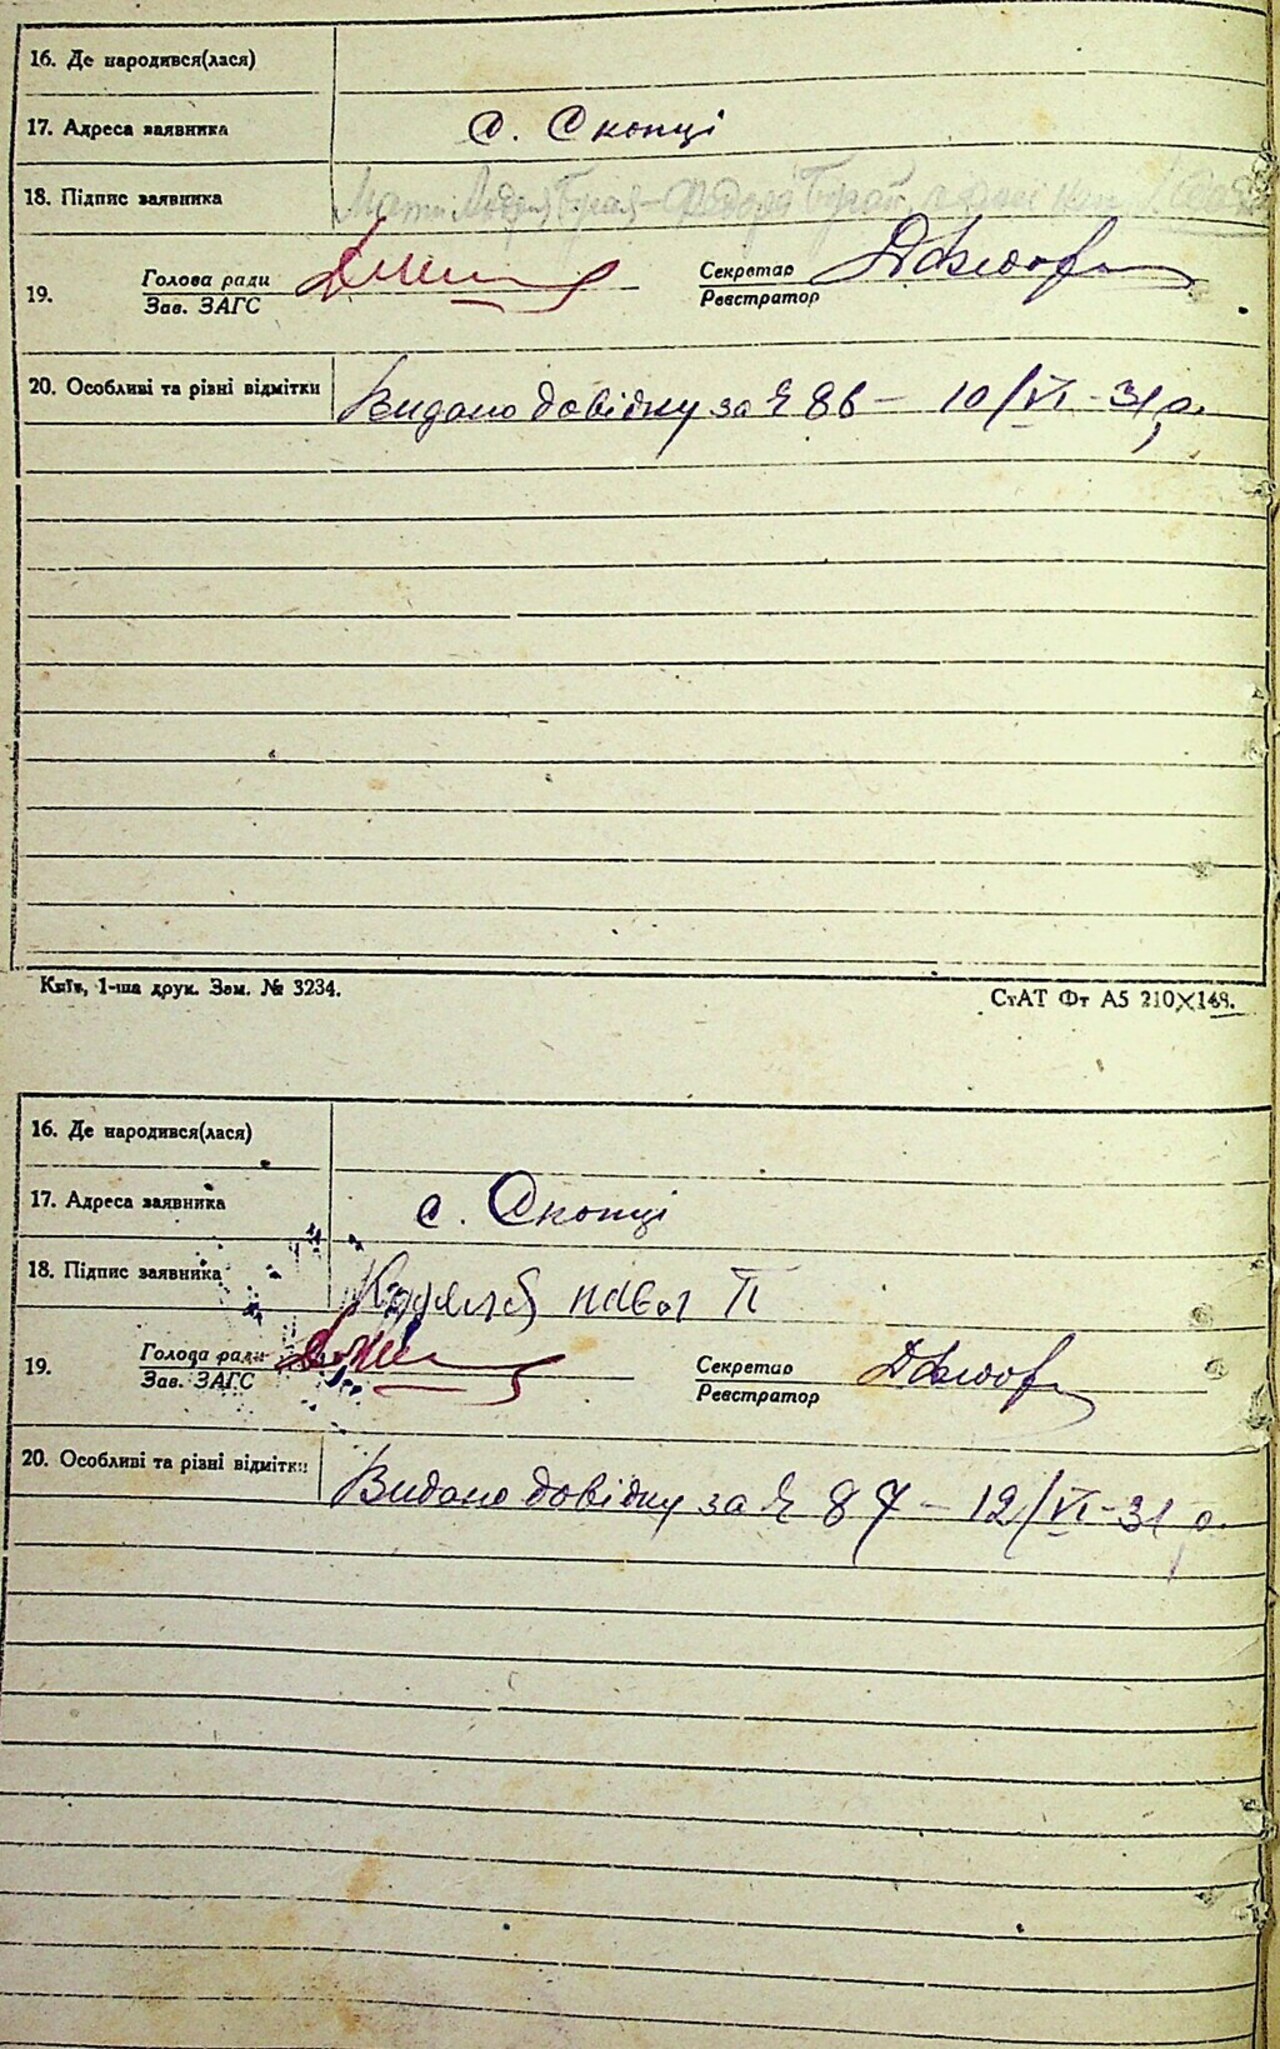 16. Де народився(лася)
17. Адреса заявника с. Скопці
18. Підпис заявника
19. Голова ради Секретар
Зав. ЗАГС Реєстратор
20. Особливі та різні відмітки Видано довідку за № 86 – 10/VI – 31 р.
Київ, 1-ша друк. Зам. № 3234. СтАТ Фт А5 210×148.
16. Де народився(лася)
17. Адреса заявника с. Скопці
18. Підпис заявника
19. Голова ради Секретар
Зав. ЗАГС Реєстратор
20. Особливі та різні відмітки Видано довідку за № 87 – 12/VI – 31 р.